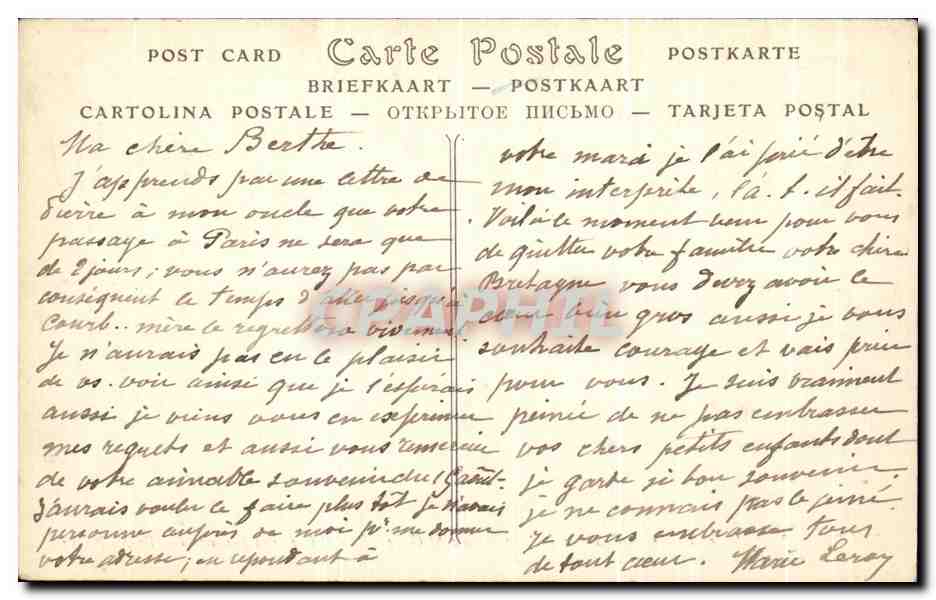 POST CARD Carte Postale POSTKARTE
BRIEFKAART — POSTKAART
CARTOLINA POSTALE — ОТКРЫТОЕ ПИСЬМО — TARJETA POSTAL
Ma chère Berthe.
J'apprends par une lettre de
Pierre à mon oncle que votre
passage à Paris ne sera que
de 2 jours; vous n'aurez pas par
conséquent le temps d'aller jusqu'à
Courb.. mère le regrettera vivement
Je n'aurais pas eu le plaisir
de vs. voir ainsi que je l'espérais
aussi je viens vous en exprimer
mes regrets et aussi vous remercier
de votre aimable souvenir du
J'aurais voulu le faire plus tôt je n'avais
personne auprès de moi pr. me donner
votre adresse; en répondant à
votre mari je l'ai prié d'être
mon interprète, l'a-t-il fait.
Voilà le moment venu pour vous
de quitter votre famille votre chère
Bretagne vous devez avoir le
cœur bien gros aussi je vous
souhaite courage et vais prier
pour vous. Je suis vraiment
peinée de ne pas embrasser
vos chers petits enfants dont
je garde si bon souvenir.
je ne connais pas le
Je vous embrasse tous
de tout cœur. Marie Leroy